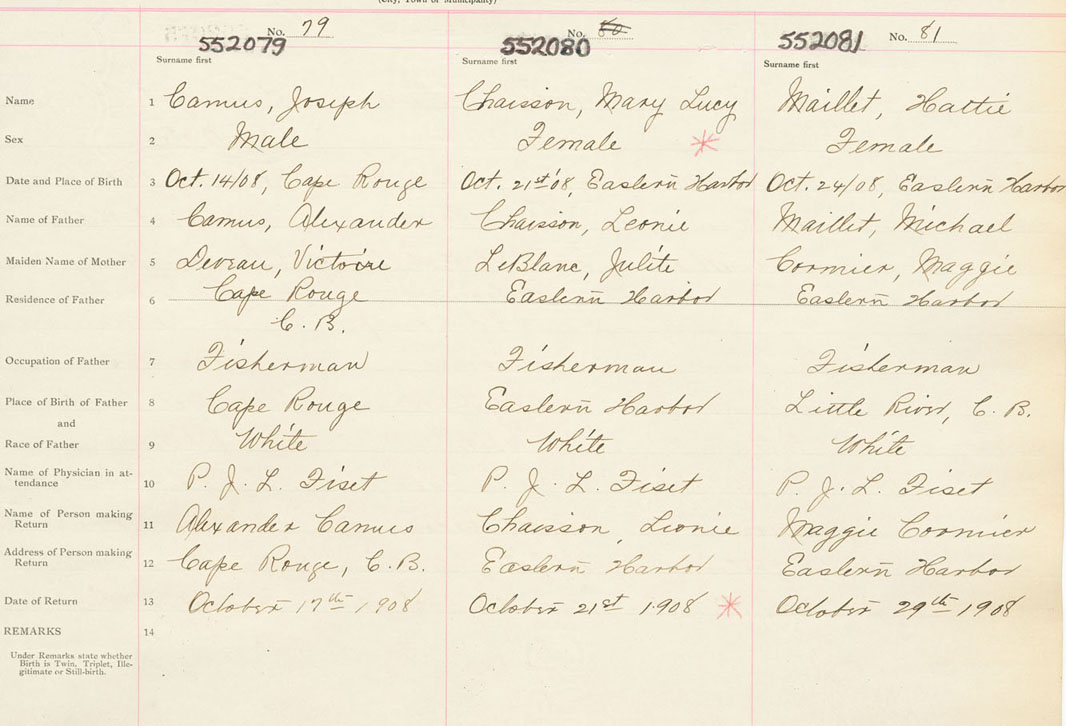 (City, Town or Municipality)
No. 79 No. 80 No. 81
552079 552080 552081
Surname first Surname first Surname first
Name 1 Camus, Joseph Chaisson, Mary Lucy Maillet, Hattie
Sex 2 Male Female * Female
Date and Place of Birth 3 Oct. 14/08, Cape Rouge Oct. 21st '08, Eastern Harbor Oct. 24/08, Eastern Harbor
Name of Father 4 Camus, Alexander Chaisson, Leonie Maillet, Michael
Maiden Name of Mother 5 Deveau, Victoire LeBlanc, Julite Cormier, Maggie
Residence of Father 6 Cape Rouge Eastern Harbor Eastern Harbor
C. B.
Occupation of Father 7 Fisherman Fisherman Fisherman
Place of Birth of Father 8 Cape Rouge Eastern Harbor Little River, C. B.
and
Race of Father 9 White White White
Name of Physician in at-
tendance 10 P. J. L. Fiset P. J. L. Fiset P. J. L. Fiset
Name of Person making
Return 11 Alexander Camus Chaisson, Leonie Maggie Cormier
Address of Person making
Return 12 Cape Rouge, C. B. Eastern Harbor Eastern Harbor
Date of Return 13 October 17th 1908 October 21st 1908 * October 29th 1908
REMARKS 14
Under Remarks state whether
Birth is Twin, Triplet, Ille-
gitimate or Still-birth.